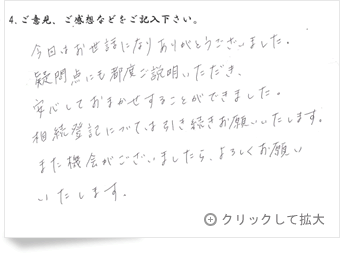 4.ご意見、ご感想などをご記入下さい。
今日はお世話になりありがとうございました。
疑問点にも都度ご説明いただき、
安心しておまかせすることができました。
相続登記については引き続きお願いいたします。
また機会がございましたら、よろしくお願い
いたします。
クリックして拡大